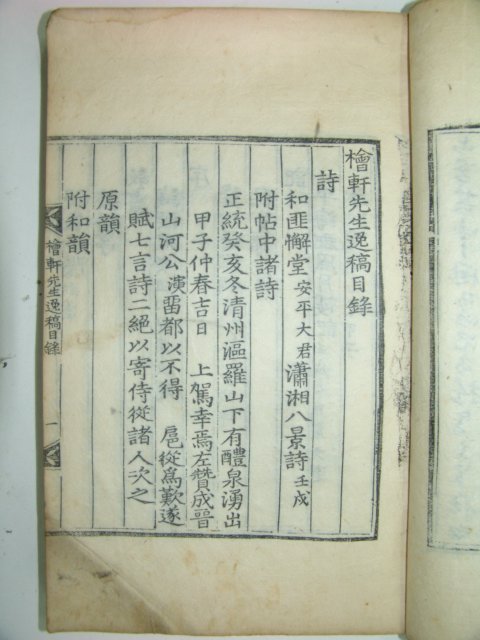 檜軒先生逸稿目錄
詩
和匪懈堂安平大君瀟湘八景詩壬戌
附帖中諸詩
正統癸亥冬清州漚羅山下有醴泉湧出
甲子仲春吉日 上駕幸焉左贊成晉
山河公演留都以不得 扈從爲歎遂
賦七言詩二絕以寄侍從諸人次之
原韻
附和韻
檜軒先生逸稿目錄 一